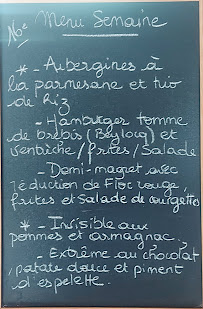 16€ Menu Semaine
* - Aubergines à
la parmesane et trio
de Riz
- Hamburger tomme
de brebis (Beylocq) et
ventrèche / frites / Salade
- Demi-magret avec
réduction de Floc rouge,
frites et Salade de courgettes
* - Invisible aux
pommes et armagnac.
- Extrême au chocolat,
patate douce et piment
d'espelette.